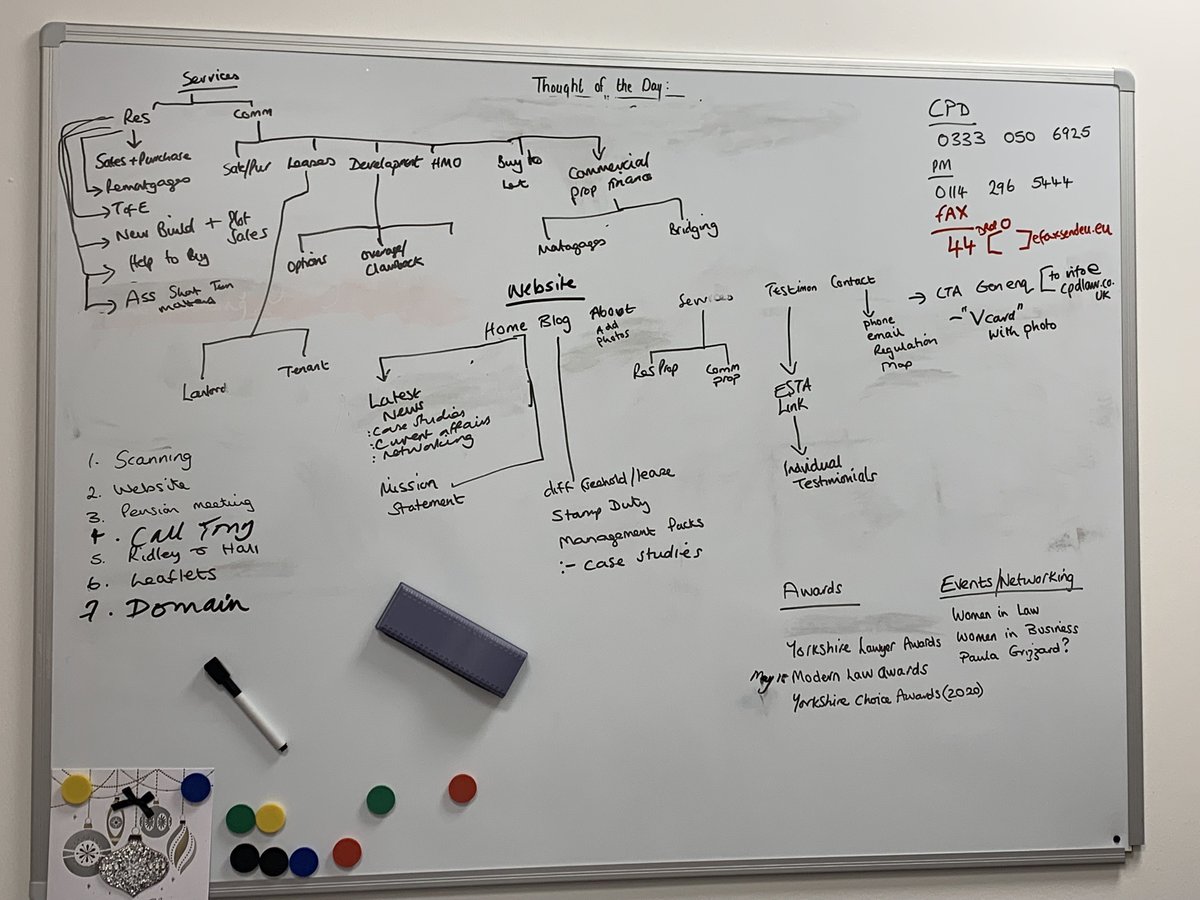 Services
Res
Comm
Sales + Purchase
Remortgages
T&E
New Build + Plot Sales
Help to Buy
Ass Short Term matters
Sale/Pur
Leases
Development
HMO
Buy to Let
Commercial prop finance
Options
Overage/
Clawback
Matagages
Bridging
Tenant
Thought of the Day:
CPD
0333 050 6925
PM
0114 296 5444
FAX
44 [Drop 0] efaxsendeu.eu
Website
Home
Blog
About
Add
Photos
Services
Testimon
Contact
→ CTA Gen enq [to info@
cpdlaw.co.
UK
- "Vcard"
with photo
phone
email
Regulation
Map
Res Prop
Comm
prop
ESTA
Link
Individual
Testimonials
Latest
News
: Case Studies
: Current affairs
: Networking
Mission
Statement
diff freehold/lease
Stamp Duty
Management Packs
:- Case studies
1. Scanning
2. Website
3. Pension meeting
4. Call Tony
5. Ridley & Hall
6. Leaflets
7. Domain
Awards
Yorkshire Lawyer Awards
May 18 Modern Law awards
Yorkshire Choice Awards (2020)
Events/Networking
Women in Law
Women in Business
Paula Grizzard?